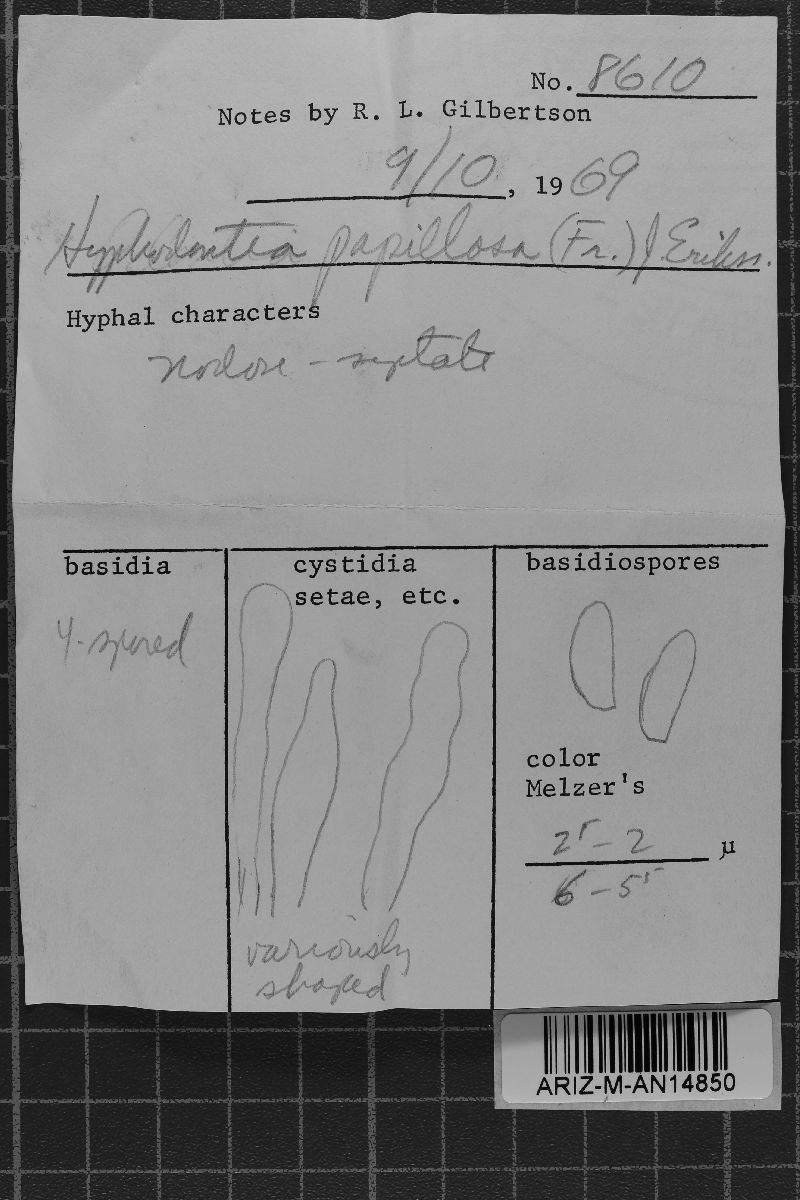 No. 8610
Notes by R. L. Gilbertson
9/10, 1969
Hyphodontia papillosa (Fr.) J. Erikss.
Hyphal characters
nodose - septate
basidia
4-spored
cystidia
setae, etc.
variously
shaped
basidiospores
color
Melzer's
2⁵ - 2 µ
6 - 5⁵
ARIZ-M-AN14850